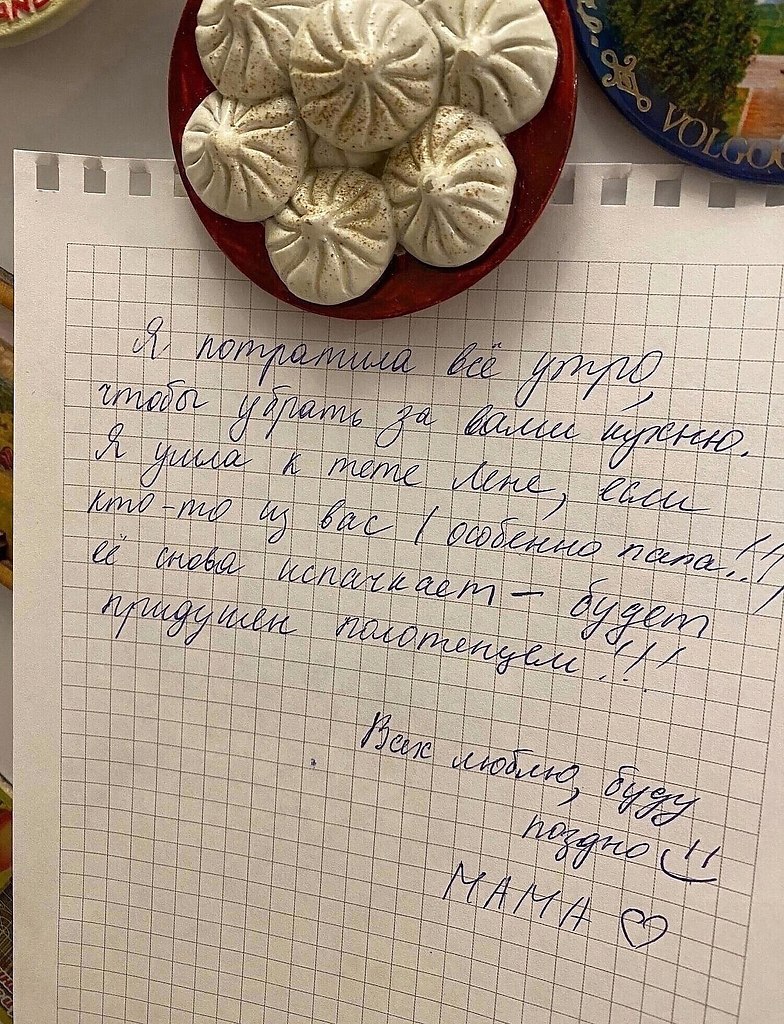 AND
VOLGOG
Я потратила всё утро,
чтобы убрать за вами кухню.
Я ушла к тете Лене, если
кто-то из вас (особенно папа!!)
её снова испачкает – будет
придушен полотенцем!!!
Всех люблю, буду
поздно
МАМА ♡